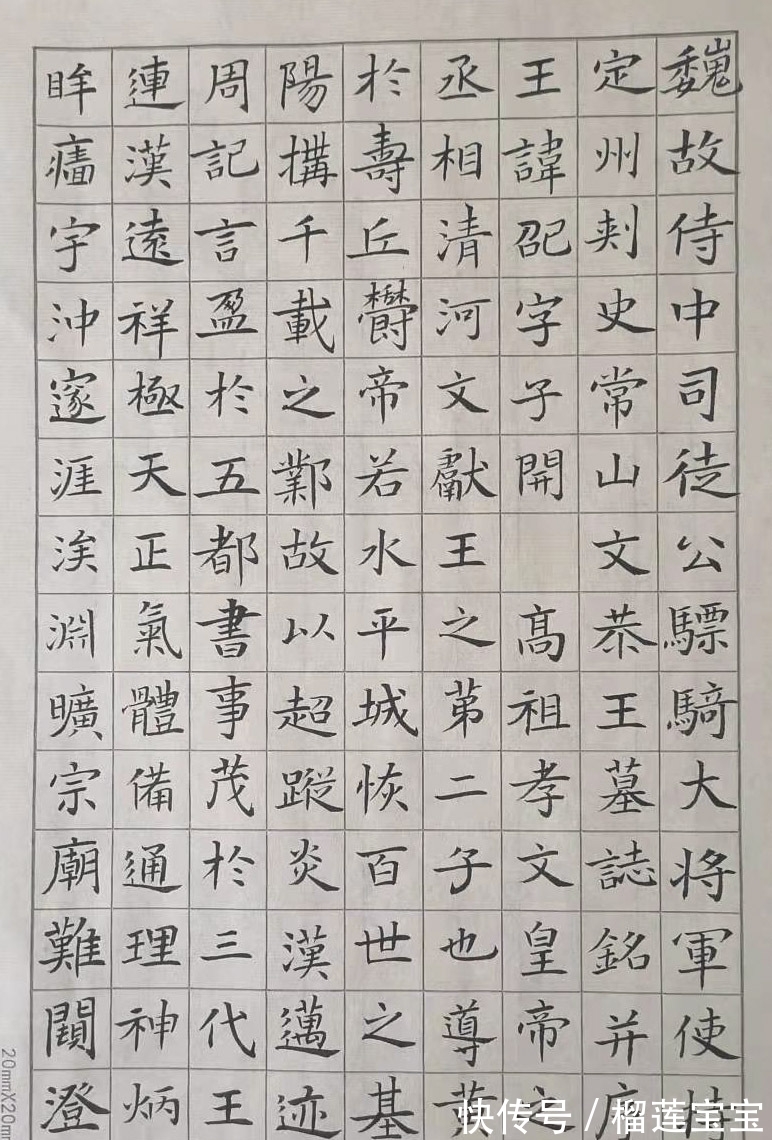 魏故侍中司徒公驃騎大將軍使
定州刾史常山文恭王墓誌銘并序
王諱邵字子開　高祖孝文皇帝之
丞相清河文獻王之苐二子也導黄
於壽丘欝帝若水平城恢百世之基
陽搆千載之鄴故以超蹤炎漢邁迹
周記言盈於五都書事茂於三代王
連漢遠祥極天正氣體備通理神炳
眸宇沖邃涯涘淵曠宗廟難闚澄
20mmX20mm
快传号 / 榴莲宝宝